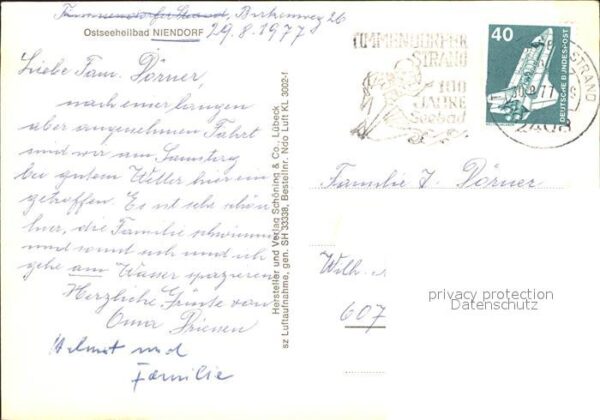 Timmendorfer Strand, Birkenweg 26
Ostseeheilbad NIENDORF 29.8.1977
Liebe Fam. Dörner,
nach einer langen
aber angenehmen Fahrt
sind wir am Samstag
bei gutem Wetter hier ein
getroffen. Es ist sehr schön
hier, die Familie schwimmt
und sonnt sich und ich
gehe am Wasser spazieren
Herzliche Grüße von
Oma Driesen
Helmut und
Familie
Hersteller und Verlag Schöning & Co., Lübeck
sz Luftaufnahme, gen. SH 33338, Bestellnr. Ndo Luft KL 3002-f
TIMMENDORFER
STRAND
100
JAHRE
Seebad
STRAND
77
2408
40
DEUTSCHE BUNDESPOST
Familie J. Dörner
Wilh
607
privacy protection
Datenschutz